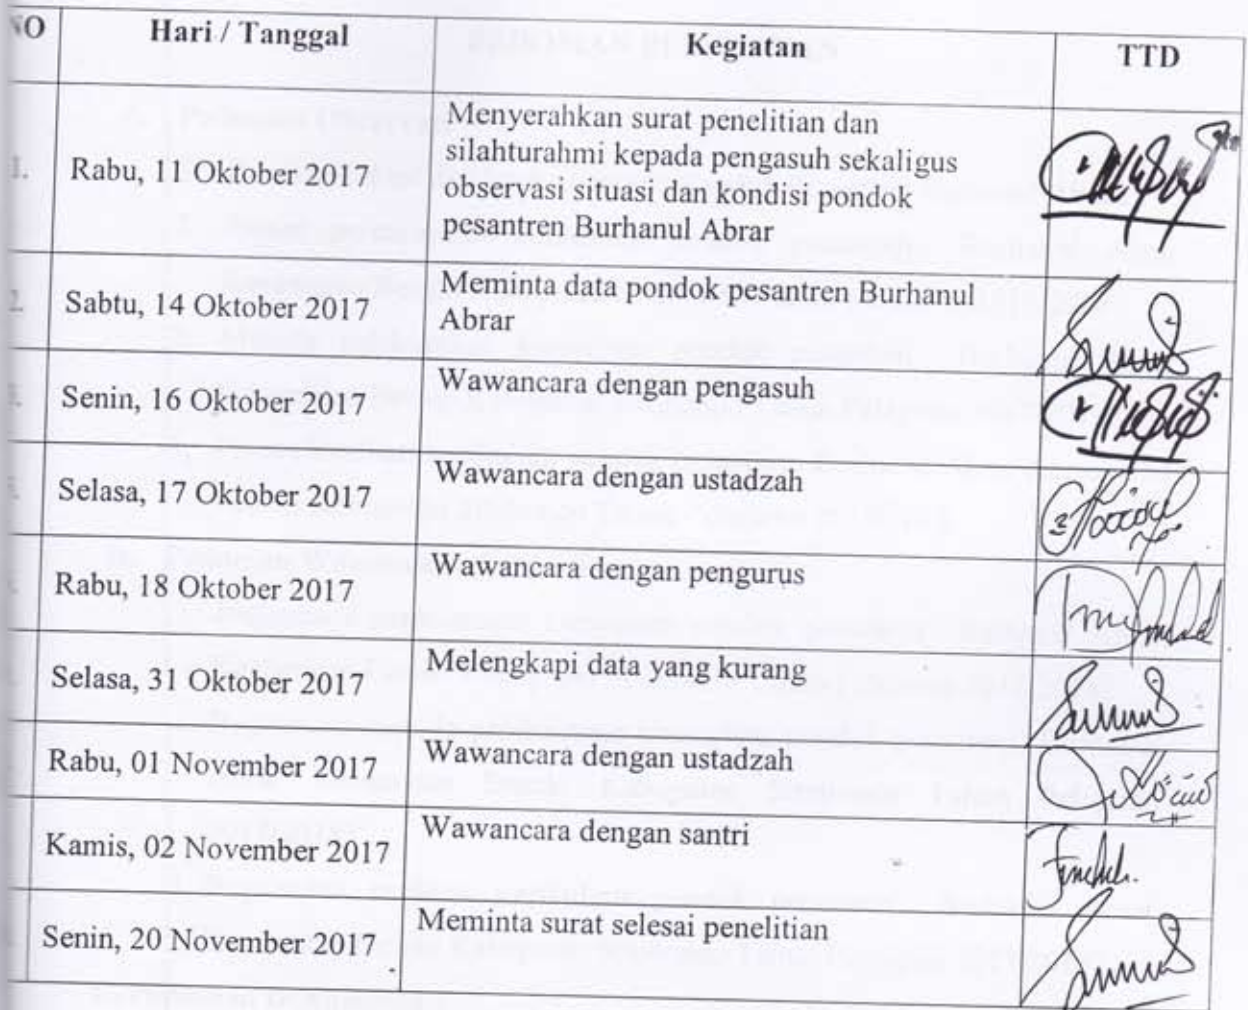 NO Hari / Tanggal Kegiatan TTD
1. Rabu, 11 Oktober 2017 Menyerahkan surat penelitian dan
silahturahmi kepada pengasuh sekaligus
observasi situasi dan kondisi pondok
pesantren Burhanul Abrar
2. Sabtu, 14 Oktober 2017 Meminta data pondok pesantren Burhanul
Abrar
Senin, 16 Oktober 2017 Wawancara dengan pengasuh
Selasa, 17 Oktober 2017 Wawancara dengan ustadzah
Rabu, 18 Oktober 2017 Wawancara dengan pengurus
Selasa, 31 Oktober 2017 Melengkapi data yang kurang
Rabu, 01 November 2017 Wawancara dengan ustadzah
Kamis, 02 November 2017 Wawancara dengan santri
Senin, 20 November 2017 Meminta surat selesai penelitian